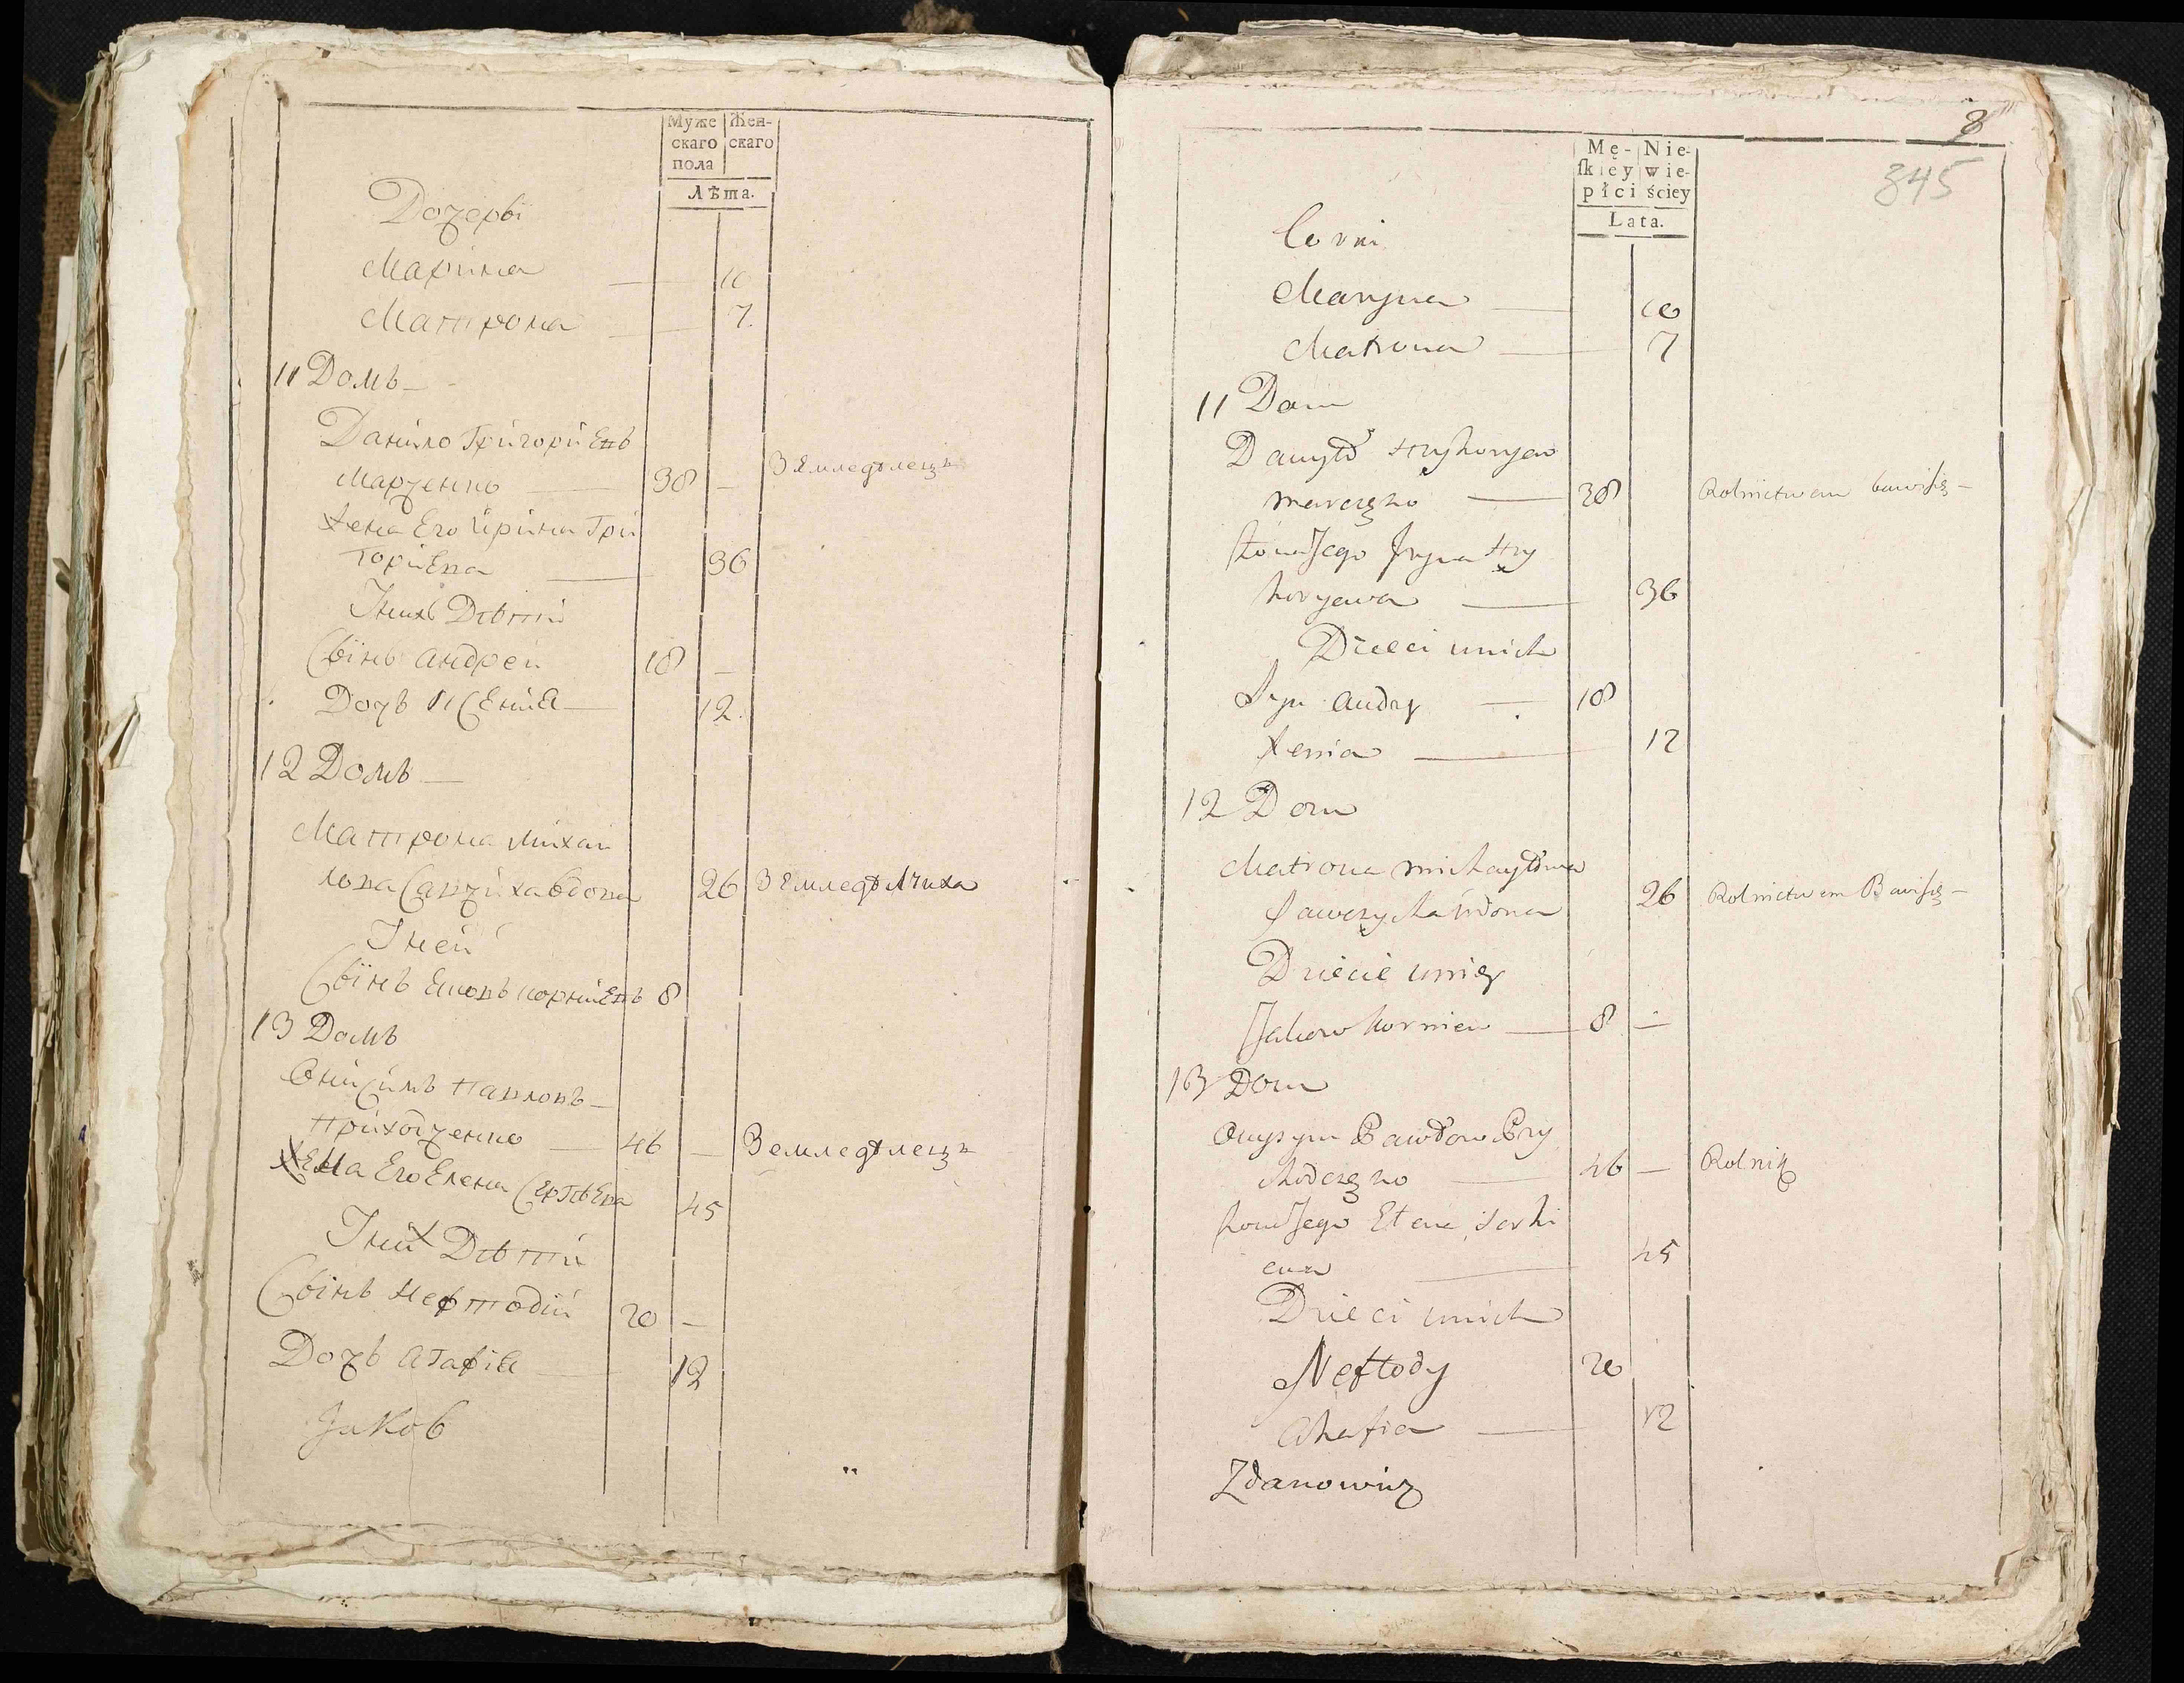 Муже Жен-
скаго скаго
пола
Лѣта.
Дочерѣ
Марина — 10
Матрона — 7.
11 Домъ —
Данило Григориевъ
Марченко — 38 — Земледѣлецъ
Жена Его Ирина Гри
гориева — 36
Унихъ Дѣти
Сынъ Андрей 18 —
Дочъ Ксения — 12.
12 Домъ —
Матрона Михаи
лова Савчиха вдова 26 Земледѣлчиха
Уней
Сынъ Яковъ корниевъ 8
13 Домъ
Онисимъ Павловъ —
Приходченко — 46 — Земледѣлецъ
Жена Его Елена Сергѣева 45
Уних Дѣти
Сынъ Нефтодий 20 —
Дочъ Агафия — 12
Jakób
8
845
Mę- Nie-
ſkiey wie-
płci ściey
Lata.
Corki
Maryna — 10
Matrona — 7
11 Dom
Danyło Hryhoryew
Marczęko — 38 Rolnictwem bawiſię —
Żona Jego Jryna Hry
horyewa — 36
Dzieci unich
Syn Andry — 18
Xenia — 12
12 Dom
Matrona Michayłowa
Sawczycha wdowa 26 Rolnictwem Bawiſię —
Dziecie uniey
Jakow Korniew — 8 —
13 Dom
Onysym Pawłow Pry
chodczęko — 46 — Rolnik
Żona Jego Elena Serhi
ewa — 45
Dzieci unich
Neftody 20
Ahafia — 12
Zdanowicz